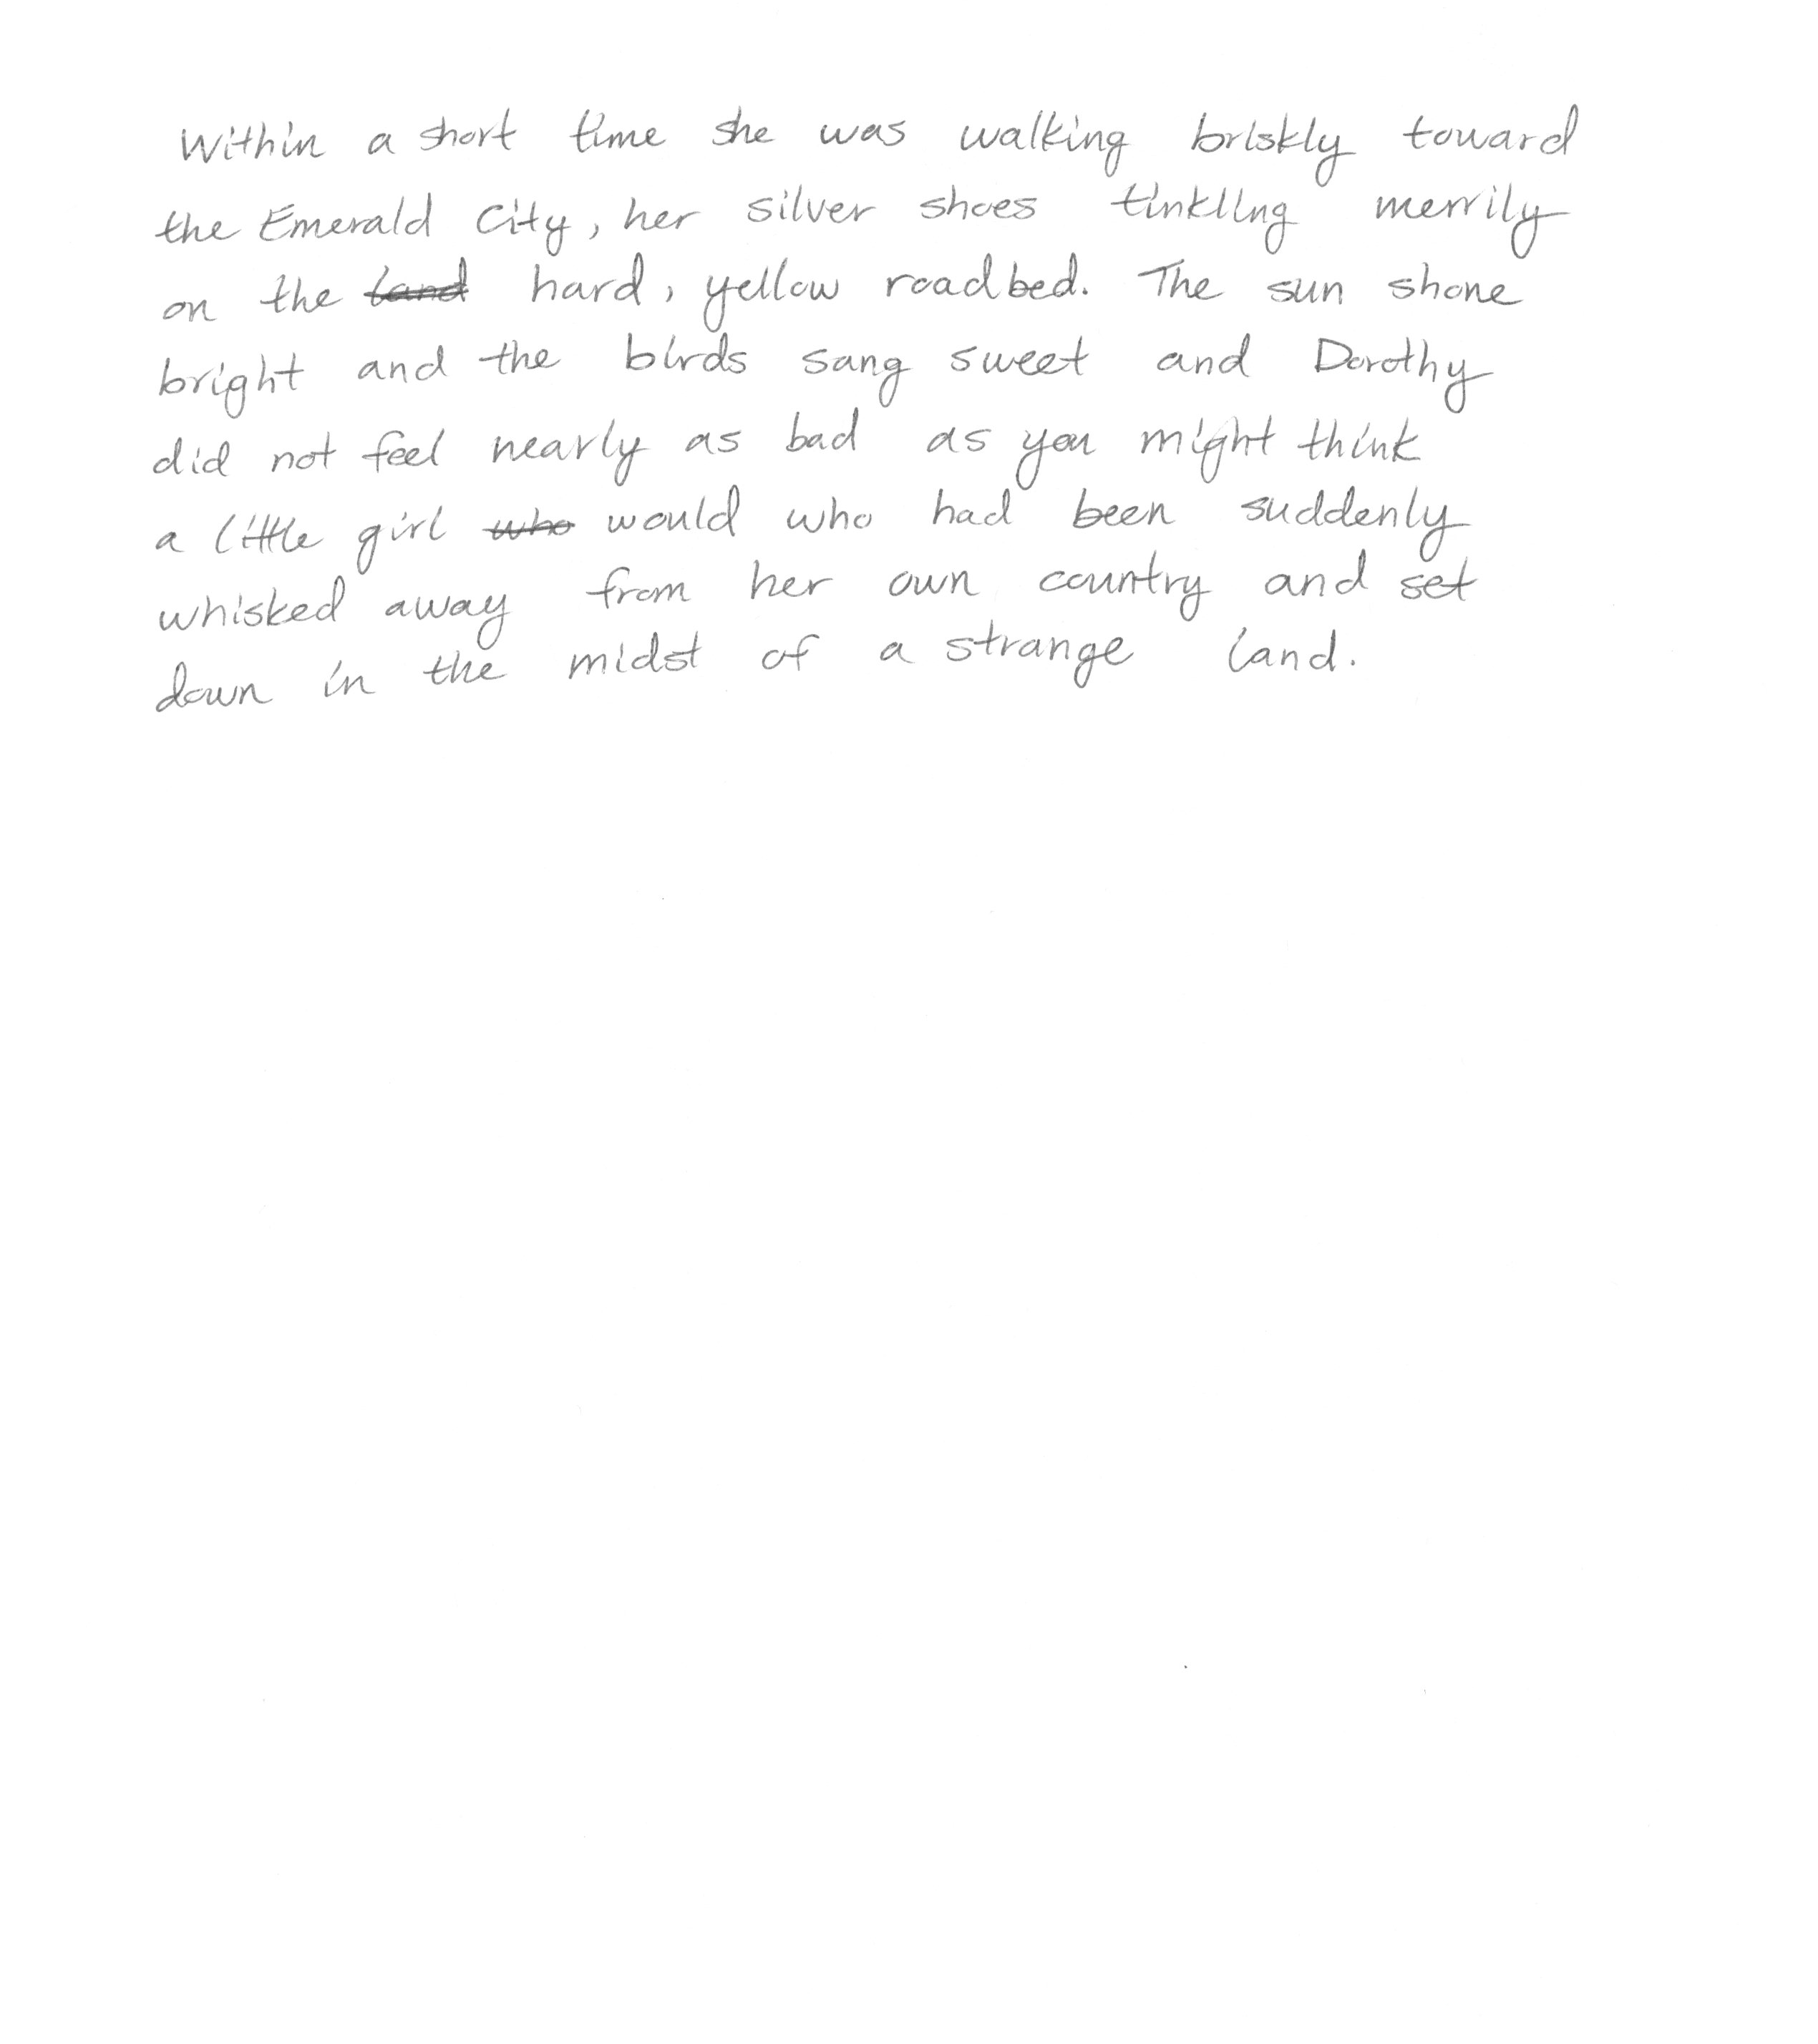 Within a short time she was walking briskly toward
the Emerald City, her silver shoes tinkling merrily
on the land hard, yellow roadbed. The sun shone
bright and the birds sang sweet and Dorothy
did not feel nearly as bad as you might think
a little girl who would who had been suddenly
whisked away from her own country and set
down in the midst of a strange land.